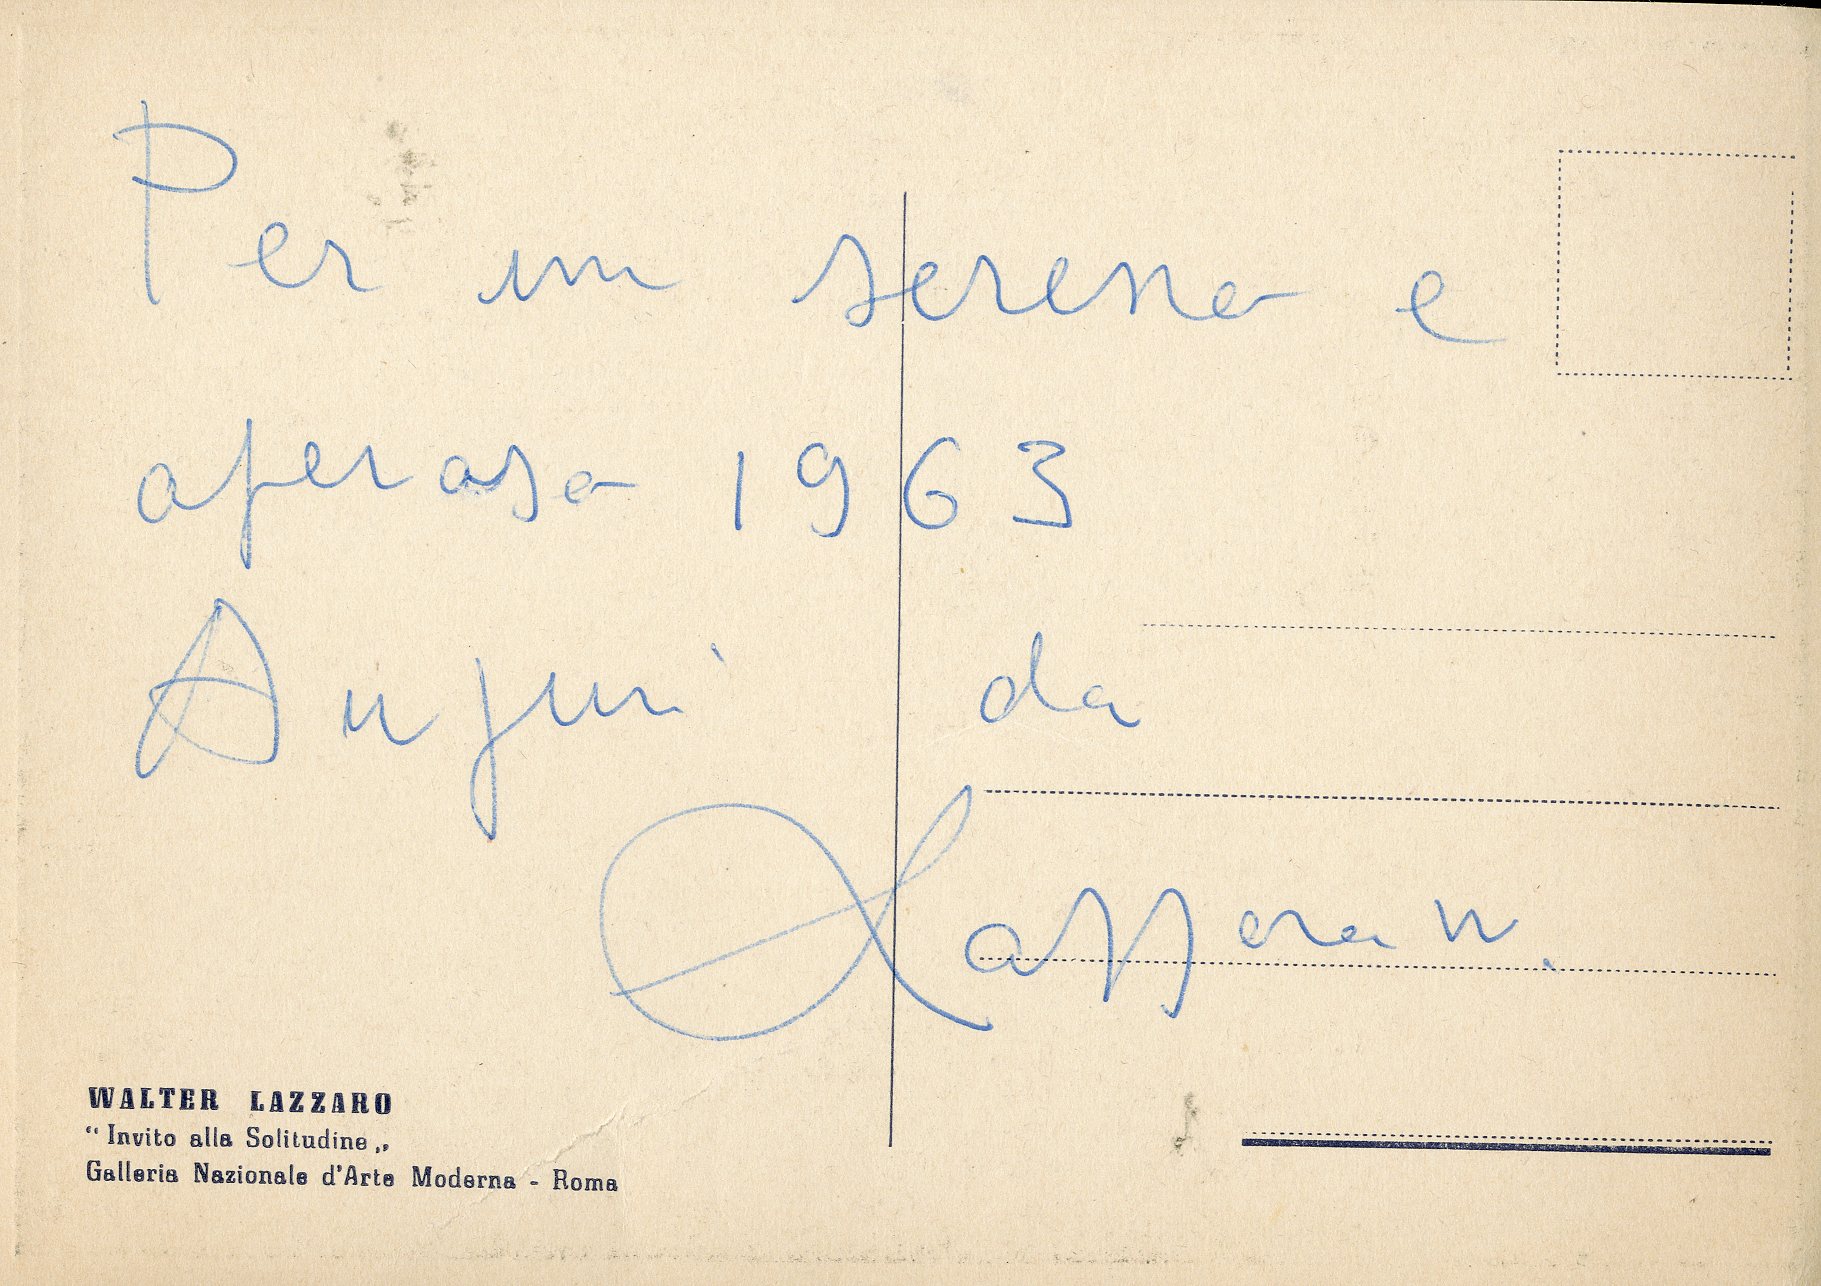 Per un sereno e
operoso 1963
Auguri da
Lazzaro W.
WALTER LAZZARO
“ Invito alla Solitudine „
Galleria Nazionale d'Arte Moderna - Roma